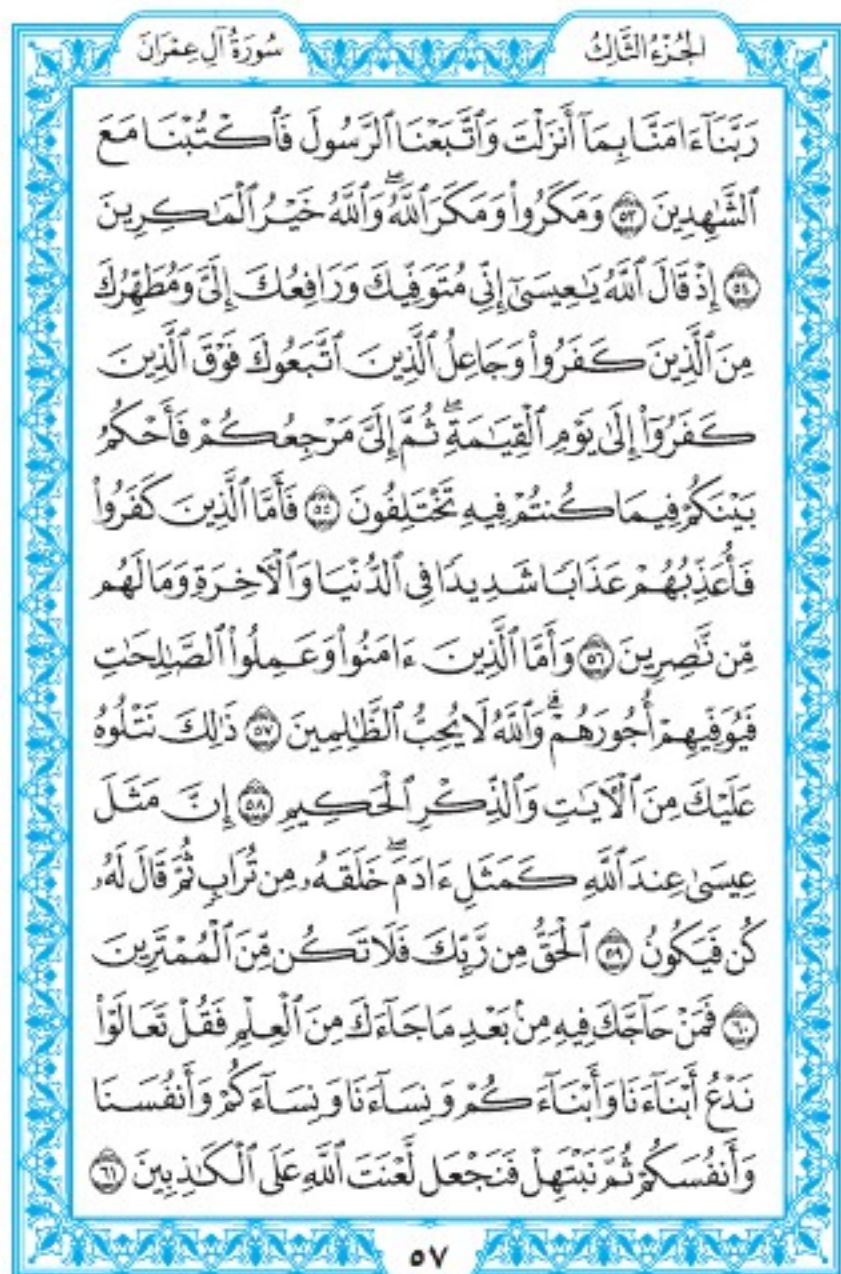 الجُزْءُ الثَّالِثُ
سُورَةُ آلِ عِمْرَانَ
رَبَّنَآ ءَامَنَّا بِمَآ أَنزَلْتَ وَٱتَّبَعْنَا ٱلرَّسُولَ فَٱكْتُبْنَا مَعَ
ٱلشَّٰهِدِينَ ٥٣ وَمَكَرُوا۟ وَمَكَرَ ٱللَّهُۖ وَٱللَّهُ خَيْرُ ٱلْمَٰكِرِينَ
٥٤ إِذْ قَالَ ٱللَّهُ يَٰعِيسَىٰٓ إِنِّى مُتَوَفِّيكَ وَرَافِعُكَ إِلَىَّ وَمُطَهِّرُكَ
مِنَ ٱلَّذِينَ كَفَرُوا۟ وَجَاعِلُ ٱلَّذِينَ ٱتَّبَعُوكَ فَوْقَ ٱلَّذِينَ
كَفَرُوٓا۟ إِلَىٰ يَوْمِ ٱلْقِيَٰمَةِۖ ثُمَّ إِلَىَّ مَرْجِعُكُمْ فَأَحْكُمُ
بَيْنَكُمْ فِيمَا كُنتُمْ فِيهِ تَخْتَلِفُونَ ٥٥ فَأَمَّا ٱلَّذِينَ كَفَرُوا۟
فَأُعَذِّبُهُمْ عَذَابًا شَدِيدًا فِى ٱلدُّنْيَا وَٱلْءَاخِرَةِ وَمَا لَهُم
مِّن نَّٰصِرِينَ ٥٦ وَأَمَّا ٱلَّذِينَ ءَامَنُوا۟ وَعَمِلُوا۟ ٱلصَّٰلِحَٰتِ
فَيُوَفِّيهِمْ أُجُورَهُمْۗ وَٱللَّهُ لَا يُحِبُّ ٱلظَّٰلِمِينَ ٥٧ ذَٰلِكَ نَتْلُوهُ
عَلَيْكَ مِنَ ٱلْءَايَٰتِ وَٱلذِّكْرِ ٱلْحَكِيمِ ٥٨ إِنَّ مَثَلَ
عِيسَىٰ عِندَ ٱللَّهِ كَمَثَلِ ءَادَمَۖ خَلَقَهُۥ مِن تُرَابٍ ثُمَّ قَالَ لَهُۥ
كُن فَيَكُونُ ٥٩ ٱلْحَقُّ مِن رَّبِّكَ فَلَا تَكُن مِّنَ ٱلْمُمْتَرِينَ
٦٠ فَمَنْ حَآجَّكَ فِيهِ مِنۢ بَعْدِ مَا جَآءَكَ مِنَ ٱلْعِلْمِ فَقُلْ تَعَالَوْا۟
نَدْعُ أَبْنَآءَنَا وَأَبْنَآءَكُمْ وَنِسَآءَنَا وَنِسَآءَكُمْ وَأَنفُسَنَا
وَأَنفُسَكُمْ ثُمَّ نَبْتَهِلْ فَنَجْعَل لَّعْنَتَ ٱللَّهِ عَلَى ٱلْكَٰذِبِينَ ٦١
٥٧